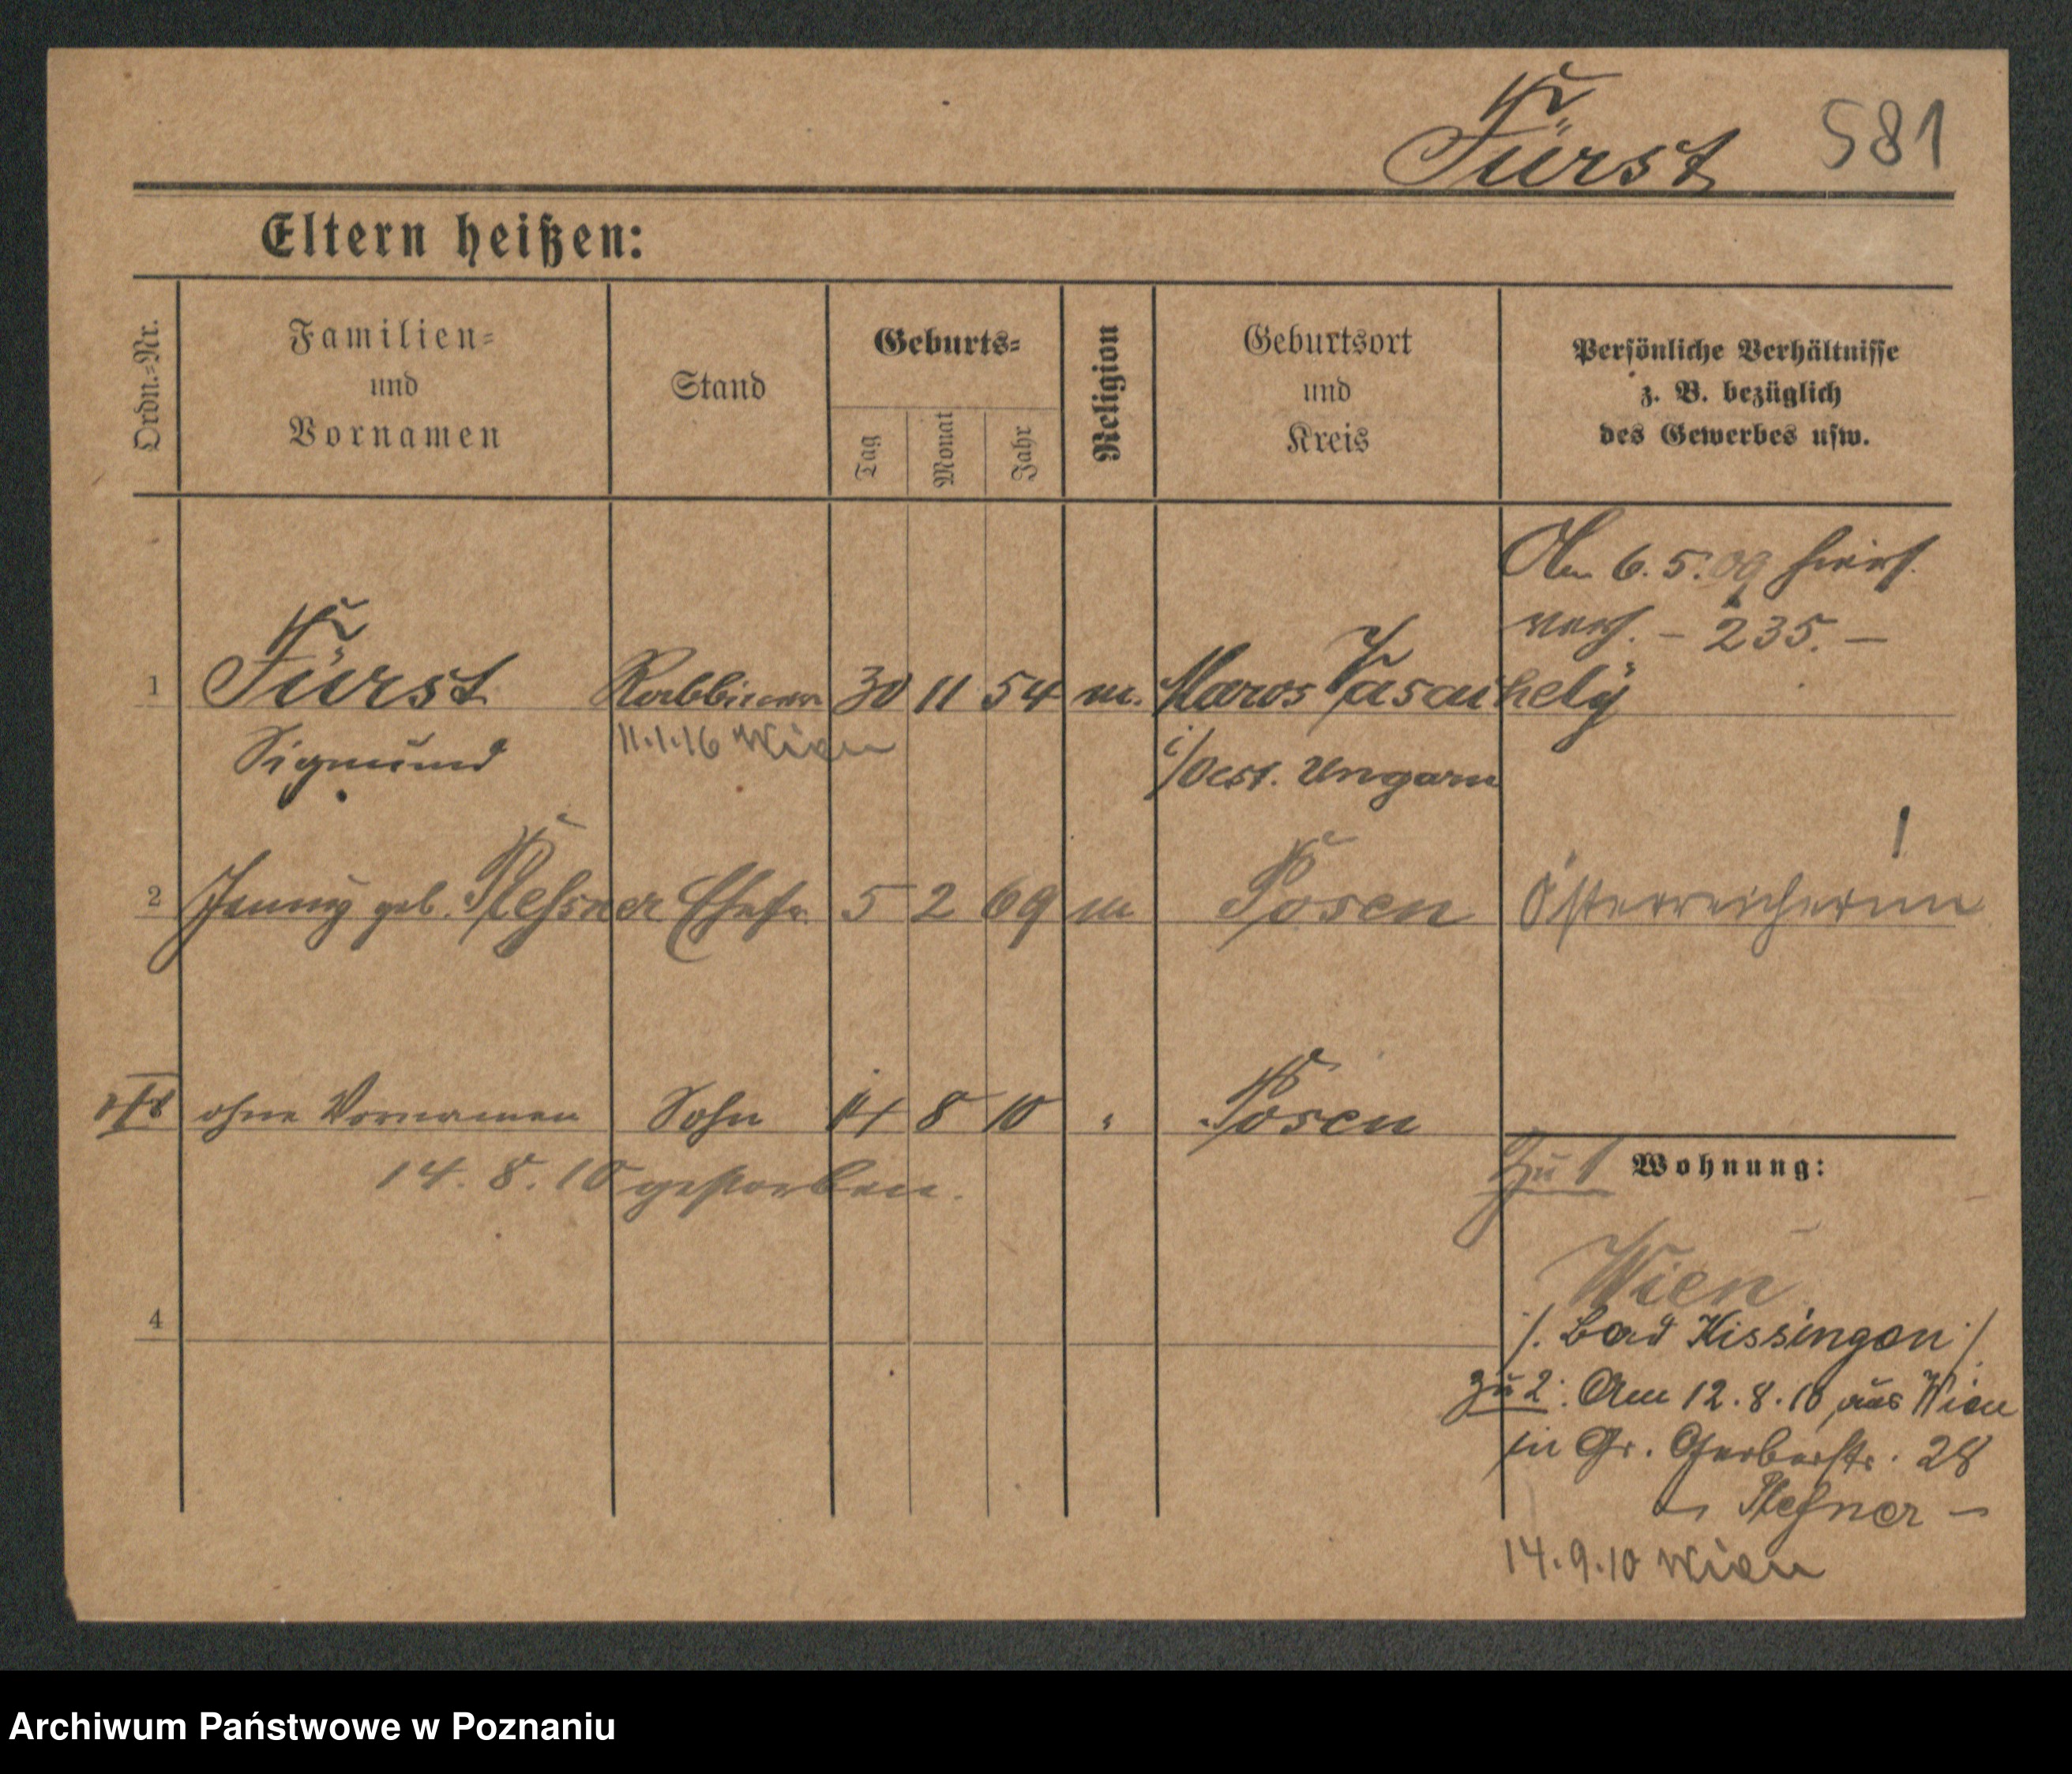 Fürst 581
Eltern heißen:
Ordn.=Nr.
Familien=
und
Vornamen
Stand
Geburts=
Tag
Monat
Jahr
Religion
Geburtsort
und
Kreis
Persönliche Verhältnisse
z. B. bezüglich
des Gewerbes usw.
Am 6.5.09 hiers.
verh. – 235. –
1 Fürst Rabbiner 30 11 54 m. Maros Vasarhely
Sigmund 11.1.16 Wien i/Oest. Ungarn
2 Jenny geb. Pleßner Ehefr. 5 2 69 m Posen Österreicherin
ohne Vornamen Sohn 14 8 10 " Posen
14.8.10 gestorben.
Zu 1 Wohnung:
Wien
/. Bad Kissingen ./
4
zu 2: Am 12.8.10 aus Wien
in Gr. Gerberstr. 28
– Pleßner –
14.9.10 Wien
Archiwum Państwowe w Poznaniu